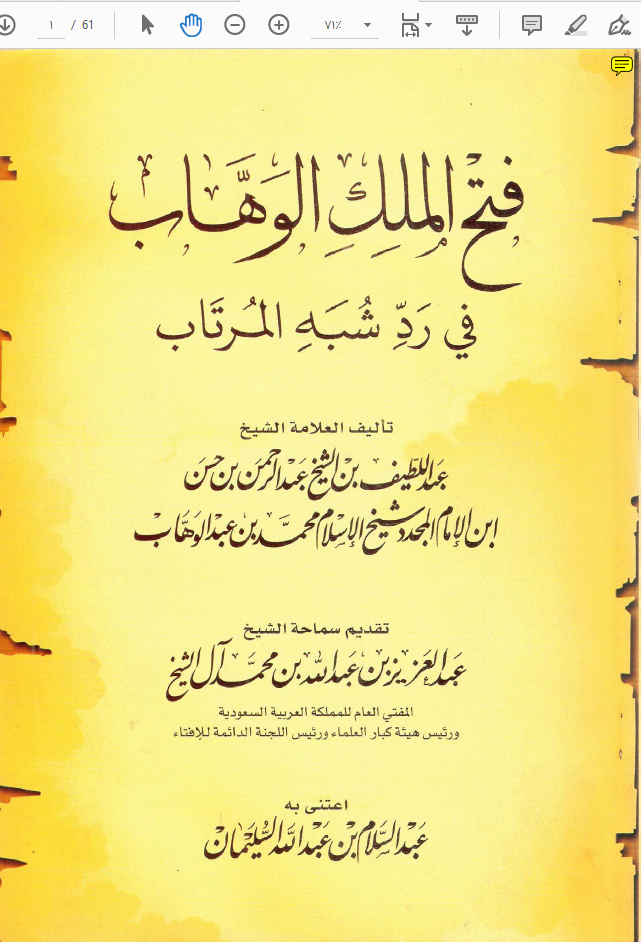 ١ / 61 ٧١٪
فَتْحُ المَلِكِ الوَهَّاب
فِي رَدِّ شُبَهِ المُرتَاب
تأليف العلامة الشيخ
عبد اللطيف بن الشيخ عبد الرحمن بن حسن
ابن الإمام المجدد شيخ الإسلام محمد بن عبد الوهاب
تقديم سماحة الشيخ
عبد العزيز بن عبد الله بن محمد آل الشيخ
المفتي العام للمملكة العربية السعودية
ورئيس هيئة كبار العلماء ورئيس اللجنة الدائمة للإفتاء
اعتنى به
عبد السلام بن عبد الله السليمان